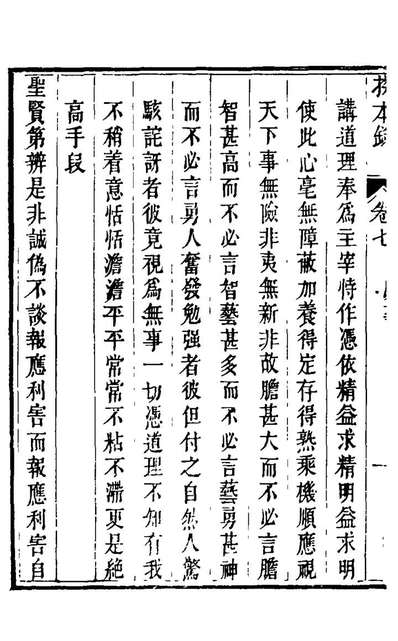 探本錄
卷七
一
講道理奉爲主宰恃作憑依精益求精明益求明
使此心毫無障蔽加養得定存得熟乘機順應視
天下事無險非夷無新非故膽甚大而不必言膽
智甚高而不必言智藝甚多而不必言藝勇甚神
而不必言勇人奮發勉强者彼但付之自然人驚
駭詫訝者彼竟視爲無事一切憑道理不知有我
不稍着意恬恬澹澹平平常常不粘不滯更是絕
高手段
聖賢第辨是非誠偽不談報應利害而報應利害自